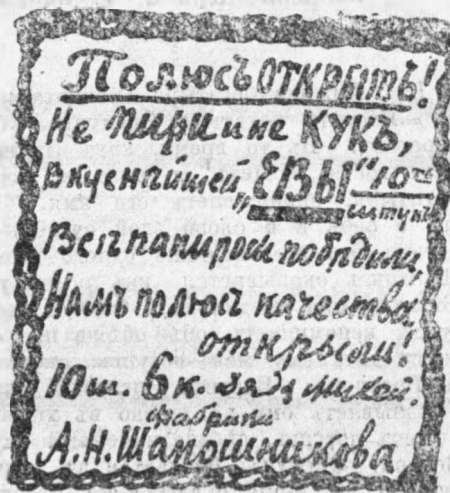 Полюсъ ОТКРЫТЪ!
Не ПИРИ и не КУКЪ,
Вкуснѣйшей „ЕВЫ" 10ть
штукъ
Всѣ папиросы побѣдили,
Намъ полюсъ качества
открыли!
10 ш. 6 к. Дядя Михей.
Фабрика
А.Н. Шапошникова